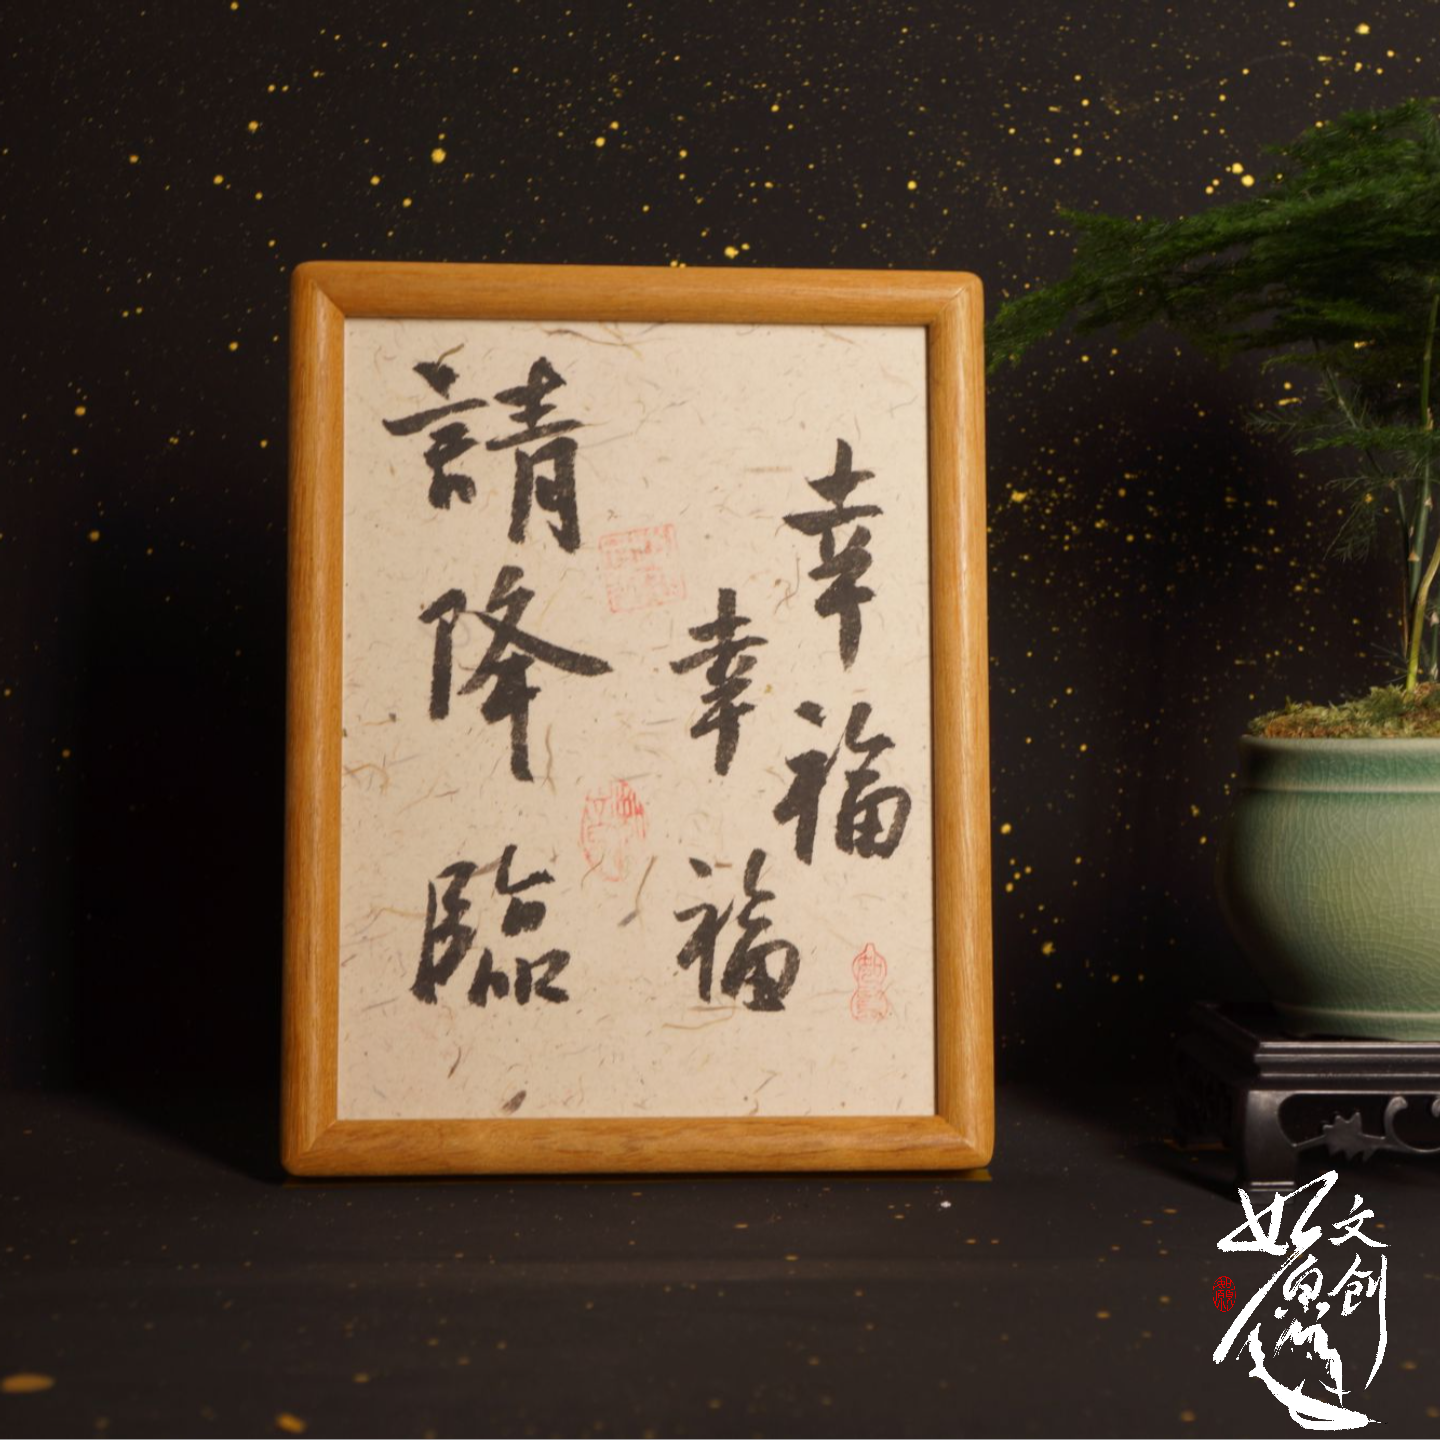 幸福
幸福
請降臨
文创